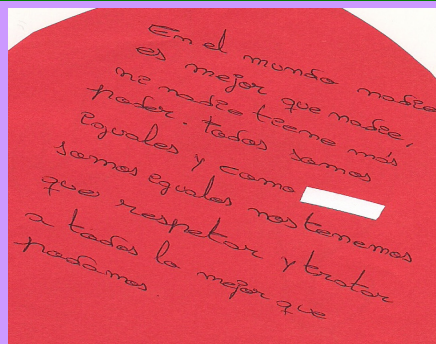 En el mundo nadie
es mejor que nadie,
ni nadie tiene más
poder. todos somos
iguales y como
somos iguales nos tenemos
que respetar y tratar
a todos lo mejor que
podamos.